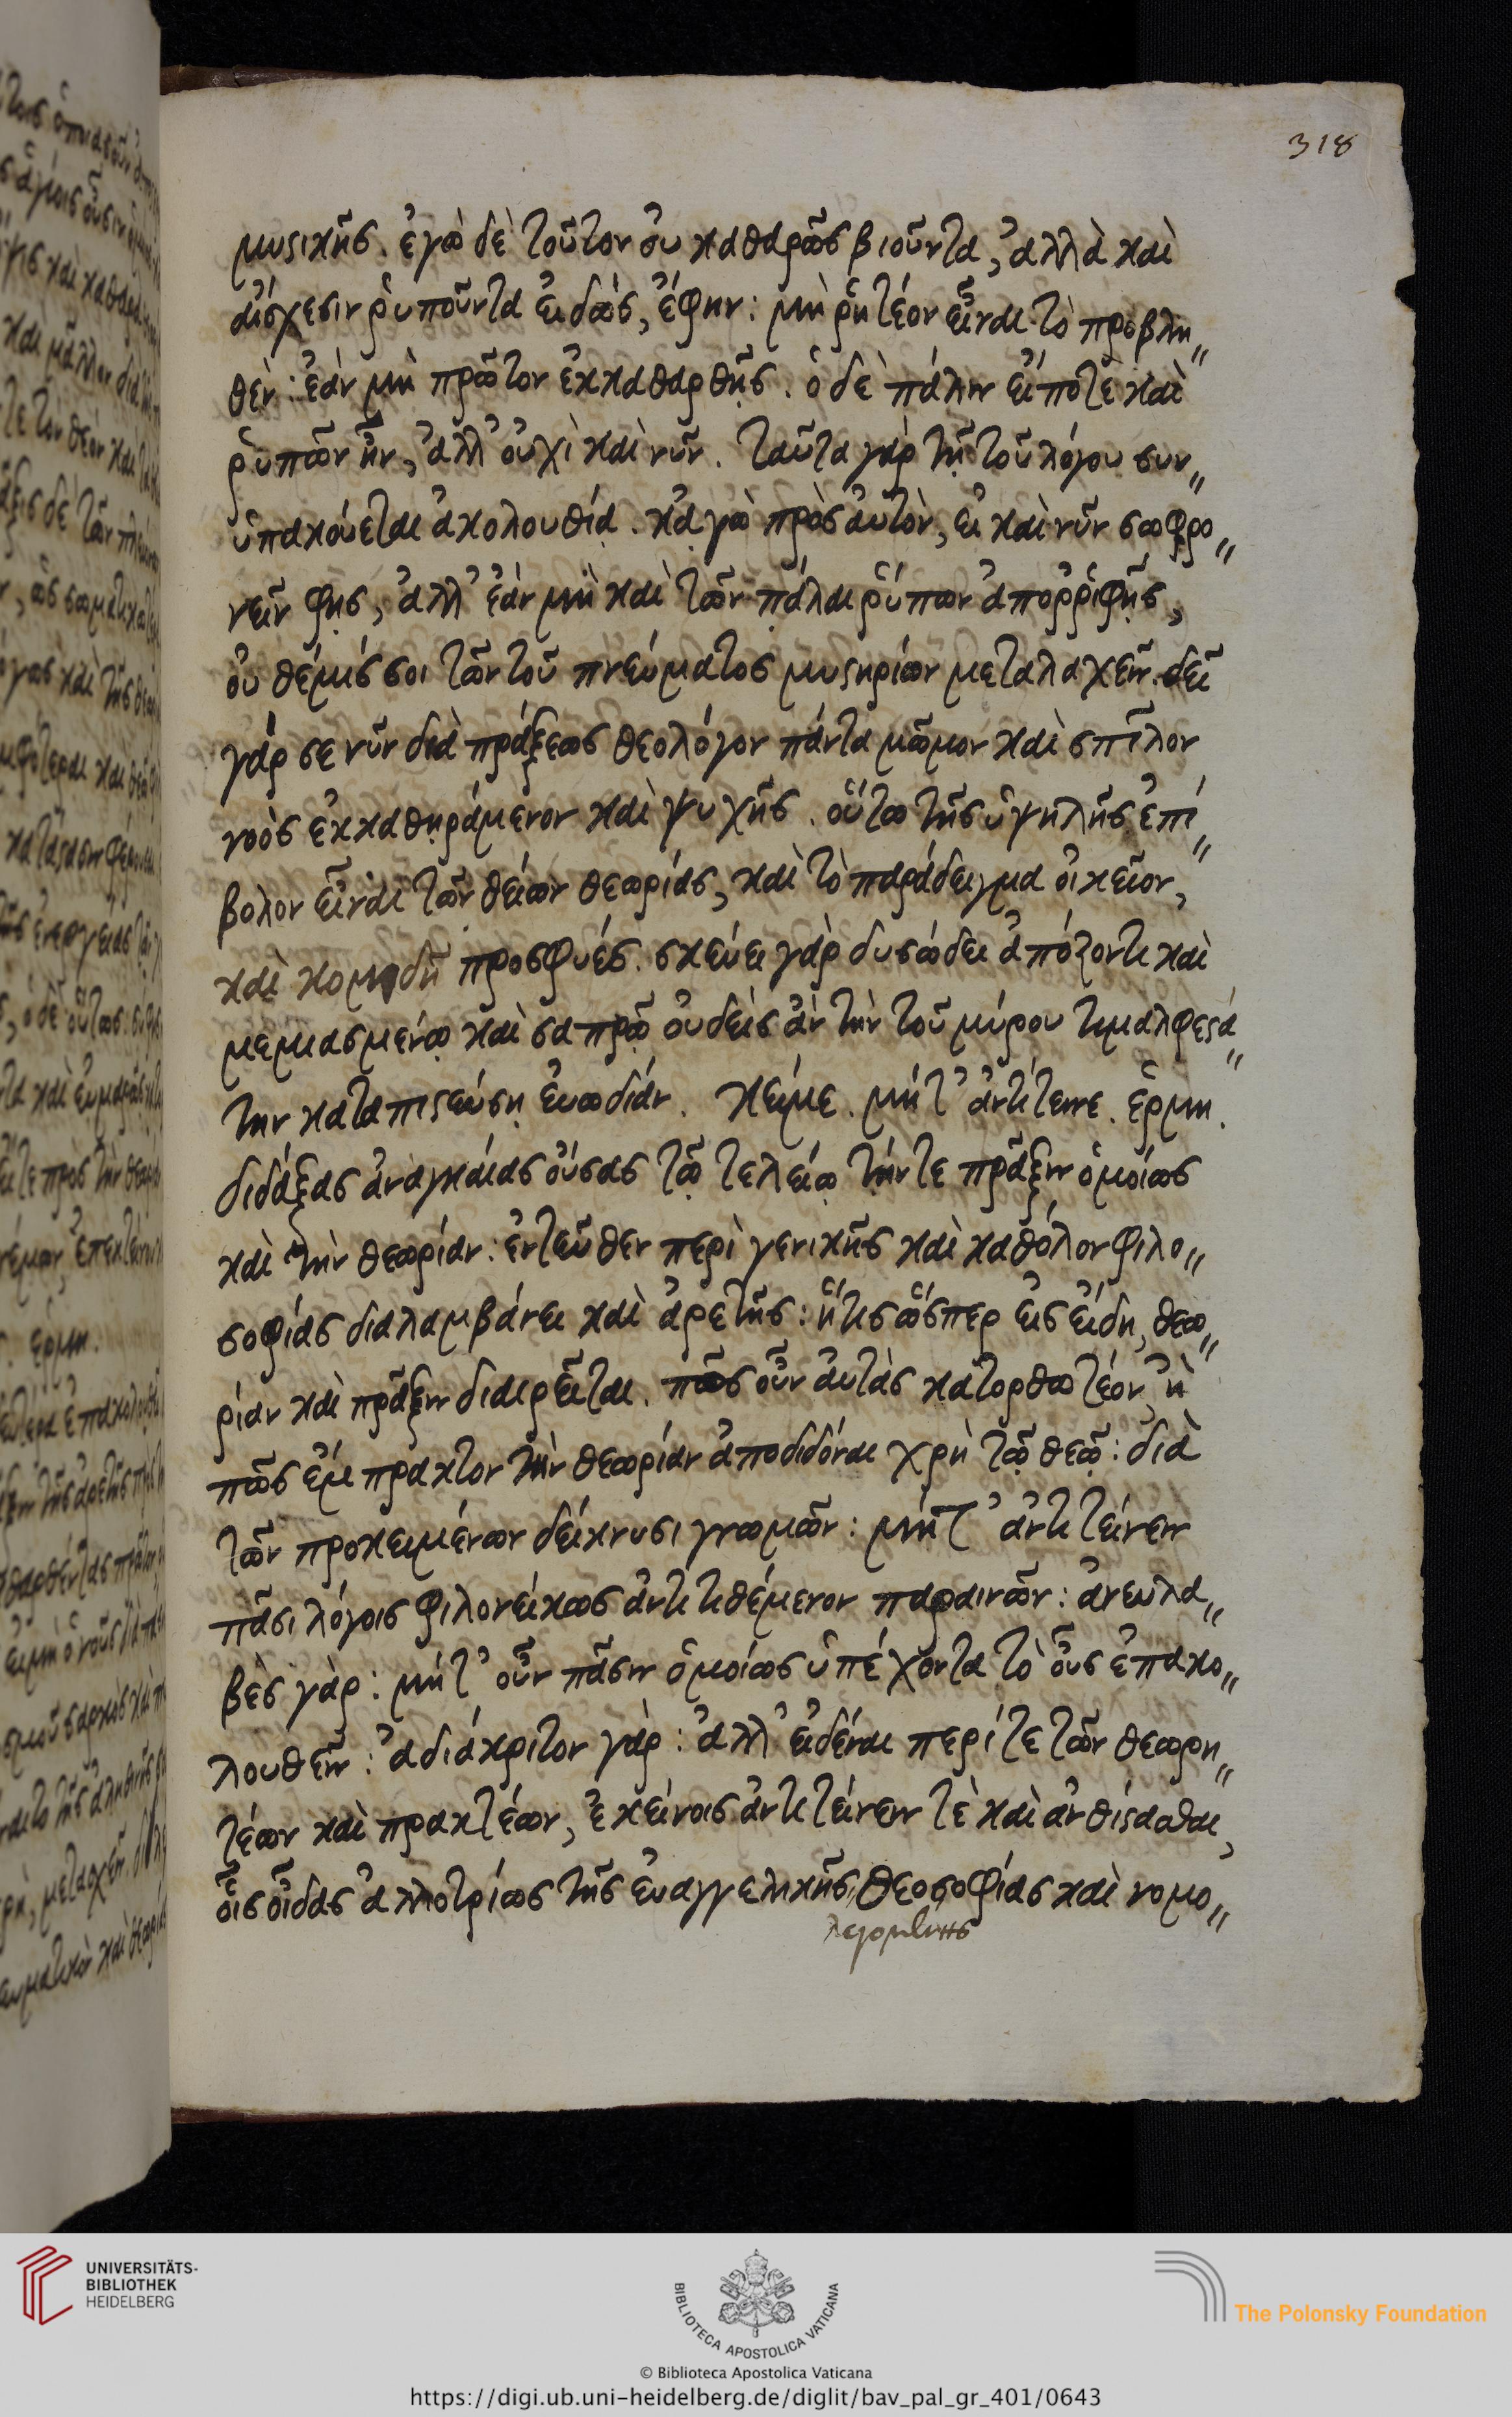 318
μυστικῆς. ἐγὼ δὲ τοῦτον οὐ καθαρῶς βιοῦντα, ἀλλὰ καὶ
αἴσχεσιν ῥυποῦντα εἰδὼς, ἔφην: μὴ ῥητέον εἶναι τὸ προβλη„
θὲν: ἐάν μὴ πρῶτον ἐκκαθαρθῇς. ὁ δὲ πάλιν εἴποτε καὶ
ῥυπῶν ἦν, ἀλλ' οὐχὶ καὶ νῦν. ταῦτα γὰρ τῇ τοῦ λόγου συν„
ὑπακούεται ἀκολουθίᾳ. κᾀγὼ πρὸς αὐτὸν, εἰ καὶ νῦν σωφρο„
νεῖν φῃς, ἀλλ' ἐάν μὴ καὶ τῶν πάλαι ῥύπων ἀπορῥιφῇς,
οὐ θέμις σοι τῶν τοῦ πνεύματος μυστηρίων μεταλαχεῖν. δεῖ
γάρ σε νῦν διὰ πράξεως θεολόγον πάντα μῶμον καὶ σπῖλον
νοὸς ἐκκαθηράμενον καὶ ψυχῆς. οὕτω τῆς ὑψηλῆς ἐπί„
βολον εἶναι τῶν θείων θεωρίας, καὶ τὸ παράδειγμα οἰκεῖον,
καὶ κομιδῇ προσφυές. σκεύει γὰρ δυσώδει ἀπόζοντι καὶ
μεμιασμένῳ καὶ σαπρῷ οὐδεὶς ἂν τὴν τοῦ μύρου τιμαλφεστά„
την καταπιστεύσῃ εὐωδίαν. κείμε. μήτ' ἀντίτεινε. ἑρμη.
διδάξας ἀναγκαίας οὔσας τῷ τελείῳ τήν τε πρᾶξιν ὁμοίως
καὶ τὴν θεωρίαν: ἐντεῦθεν περὶ γενικῆς καὶ καθόλου φιλο„
σοφίας διαλαμβάνει καὶ ἀρετῆς: ἥτις ὥσπερ εἰς εἴδη, θεω„
ρίαν καὶ πρᾶξιν διαιρεῖται. πῶς οὖν αὐτὰς κατορθωτέον, ἢ
πῶς ἔμπρακτον τὴν θεωρίαν ἀποδιδόναι χρὴ τῷ θεῷ: διὰ
τῶν προκειμένων δείκνυσι γνωμῶν: μήτ' ἀντιτείνειν
πᾶσι λόγοις φιλονείκως ἀντιτιθέμενον παραινῶν: ἀνευλα„
βὲς γὰρ: μήτ' οὖν πᾶσιν ὁμοίως ὑπέχοντα τὸ οὖς ἐπακο„
λουθεῖν: ἀδιάκριτον γὰρ: ἀλλ' εἰδέναι περί τε τῶν θεωρη„
τέων καὶ πρακτέων, ἐκείνοις ἀντιτείνειν τὲ καὶ ἀνθίστασθαι,
οἷς οἶδας ἀλλοτρίως τῆς εὐαγγελικῆς θεοσοφίας καὶ νομο„
λεγομένης
UNIVERSITÄTS-
BIBLIOTHEK
HEIDELBERG
BIBLIOTECA APOSTOLICA VATICANA
The Polonsky Foundation
© Biblioteca Apostolica Vaticana
https://digi.ub.uni-heidelberg.de/diglit/bav_pal_gr_401/0643